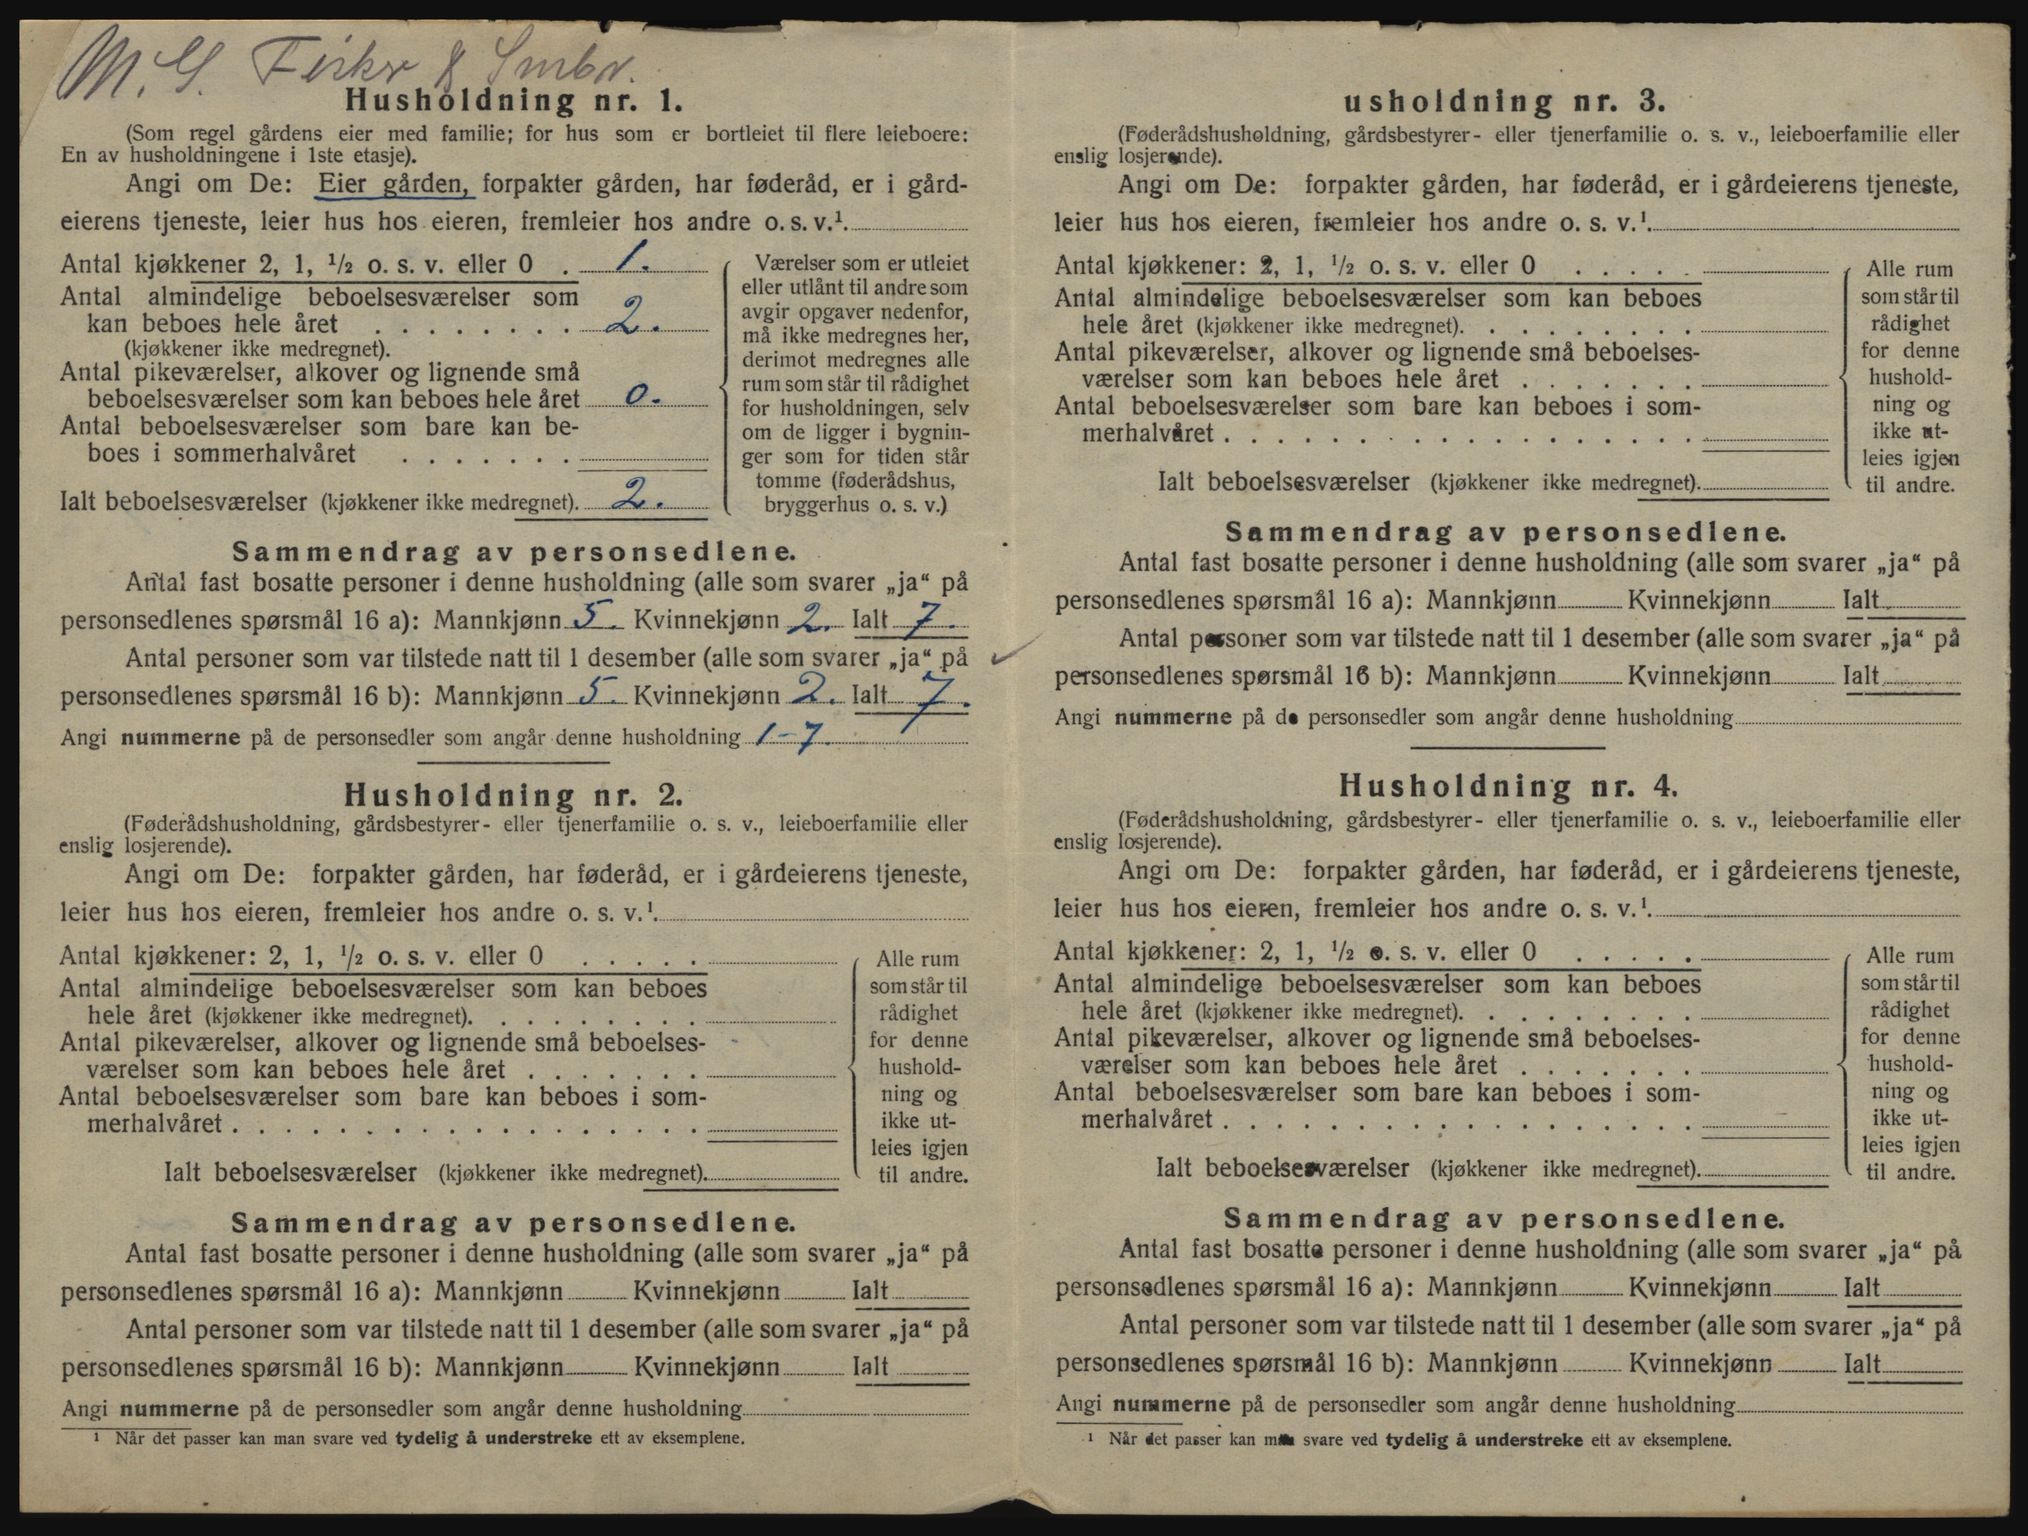 M. G. Fisker & Smbr.
Husholdning nr. 1.
(Som regel gårdens eier med familie; for hus som er bortleiet til flere leieboere:
En av husholdningene i 1ste etasje).
Angi om De: Eier gården, forpakter gården, har føderåd, er i gård-
eierens tjeneste, leier hus hos eieren, fremleier hos andre o. s. v.¹.
Antal kjøkkener 2, 1, ½ o. s. v. eller 0 . 1.
Antal almindelige beboelsesværelser som
kan beboes hele året . . . . . . . . 2.
(kjøkkener ikke medregnet).
Antal pikeværelser, alkover og lignende små
beboelsesværelser som kan beboes hele året 0.
Antal beboelsesværelser som bare kan be-
boes i sommerhalvåret . . . . . . .
Ialt beboelsesværelser (kjøkkener ikke medregnet). 2.
Værelser som er utleiet
eller utlånt til andre som
avgir opgaver nedenfor,
må ikke medregnes her,
derimot medregnes alle
rum som står til rådighet
for husholdningen, selv
om de ligger i bygnin-
ger som for tiden står
tomme (føderådshus,
bryggerhus o. s. v.)
Sammendrag av personsedlene.
Antal fast bosatte personer i denne husholdning (alle som svarer „ja“ på
personsedlenes spørsmål 16 a): Mannkjønn 5. Kvinnekjønn 2. Ialt 7.
Antal personer som var tilstede natt til 1 desember (alle som svarer „ja“ på
personsedlenes spørsmål 16 b): Mannkjønn 5. Kvinnekjønn 2. Ialt 7.
Angi nummerne på de personsedler som angår denne husholdning 1-7.
Husholdning nr. 2.
(Føderådshusholdning, gårdsbestyrer- eller tjenerfamilie o. s. v., leieboerfamilie eller
enslig losjerende).
Angi om De: forpakter gården, har føderåd, er i gårdeierens tjeneste,
leier hus hos eieren, fremleier hos andre o. s. v.¹.
Antal kjøkkener: 2, 1, ½ o. s. v. eller 0 . . . . .
Antal almindelige beboelsesværelser som kan beboes
hele året (kjøkkener ikke medregnet). . . . . . . . .
Antal pikeværelser, alkover og lignende små beboelses-
værelser som kan beboes hele året . . . . . . .
Antal beboelsesværelser som bare kan beboes i som-
merhalvåret . . . . . . . . . . . . . . . . . .
Ialt beboelsesværelser (kjøkkener ikke medregnet).
Alle rum
som står til
rådighet
for denne
hushold-
ning og
ikke ut-
leies igjen
til andre.
Sammendrag av personsedlene.
Antal fast bosatte personer i denne husholdning (alle som svarer „ja“ på
personsedlenes spørsmål 16 a): Mannkjønn Kvinnekjønn Ialt
Antal personer som var tilstede natt til 1 desember (alle som svarer „ja“ på
personsedlenes spørsmål 16 b): Mannkjønn Kvinnekjønn Ialt
Angi nummerne på de personsedler som angår denne husholdning
¹ Når det passer kan man svare ved tydelig å understreke ett av eksemplene.
usholdning nr. 3.
(Føderådshusholdning, gårdsbestyrer- eller tjenerfamilie o. s. v., leieboerfamilie eller
enslig losjerende).
Angi om De: forpakter gården, har føderåd, er i gårdeierens tjeneste,
leier hus hos eieren, fremleier hos andre o. s. v.¹.
Antal kjøkkener: 2, 1, ½ o. s. v. eller 0 . . . . .
Antal almindelige beboelsesværelser som kan beboes
hele året (kjøkkener ikke medregnet). . . . . . . . .
Antal pikeværelser, alkover og lignende små beboelses-
værelser som kan beboes hele året . . . . . . .
Antal beboelsesværelser som bare kan beboes i som-
merhalvåret . . . . . . . . . . . . . . . . . .
Ialt beboelsesværelser (kjøkkener ikke medregnet).
Alle rum
som står til
rådighet
for denne
hushold-
ning og
ikke ut-
leies igjen
til andre.
Sammendrag av personsedlene.
Antal fast bosatte personer i denne husholdning (alle som svarer „ja“ på
personsedlenes spørsmål 16 a): Mannkjønn Kvinnekjønn Ialt
Antal personer som var tilstede natt til 1 desember (alle som svarer „ja“ på
personsedlenes spørsmål 16 b): Mannkjønn Kvinnekjønn Ialt
Angi nummerne på de personsedler som angår denne husholdning
Husholdning nr. 4.
(Føderådshusholdning, gårdsbestyrer- eller tjenerfamilie o. s. v., leieboerfamilie eller
enslig losjerende).
Angi om De: forpakter gården, har føderåd, er i gårdeierens tjeneste,
leier hus hos eieren, fremleier hos andre o. s. v.¹.
Antal kjøkkener: 2, 1, ½ o. s. v. eller 0 . . . . .
Antal almindelige beboelsesværelser som kan beboes
hele året (kjøkkener ikke medregnet). . . . . . . . .
Antal pikeværelser, alkover og lignende små beboelses-
værelser som kan beboes hele året . . . . . . .
Antal beboelsesværelser som bare kan beboes i som-
merhalvåret . . . . . . . . . . . . . . . . . .
Ialt beboelsesværelser (kjøkkener ikke medregnet).
Alle rum
som står til
rådighet
for denne
hushold-
ning og
ikke ut-
leies igjen
til andre.
Sammendrag av personsedlene.
Antal fast bosatte personer i denne husholdning (alle som svarer „ja“ på
personsedlenes spørsmål 16 a): Mannkjønn Kvinnekjønn Ialt
Antal personer som var tilstede natt til 1 desember (alle som svarer „ja“ på
personsedlenes spørsmål 16 b): Mannkjønn Kvinnekjønn Ialt
Angi nummerne på de personsedler som angår denne husholdning
¹ Når det passer kan man svare ved tydelig å understreke ett av eksemplene.